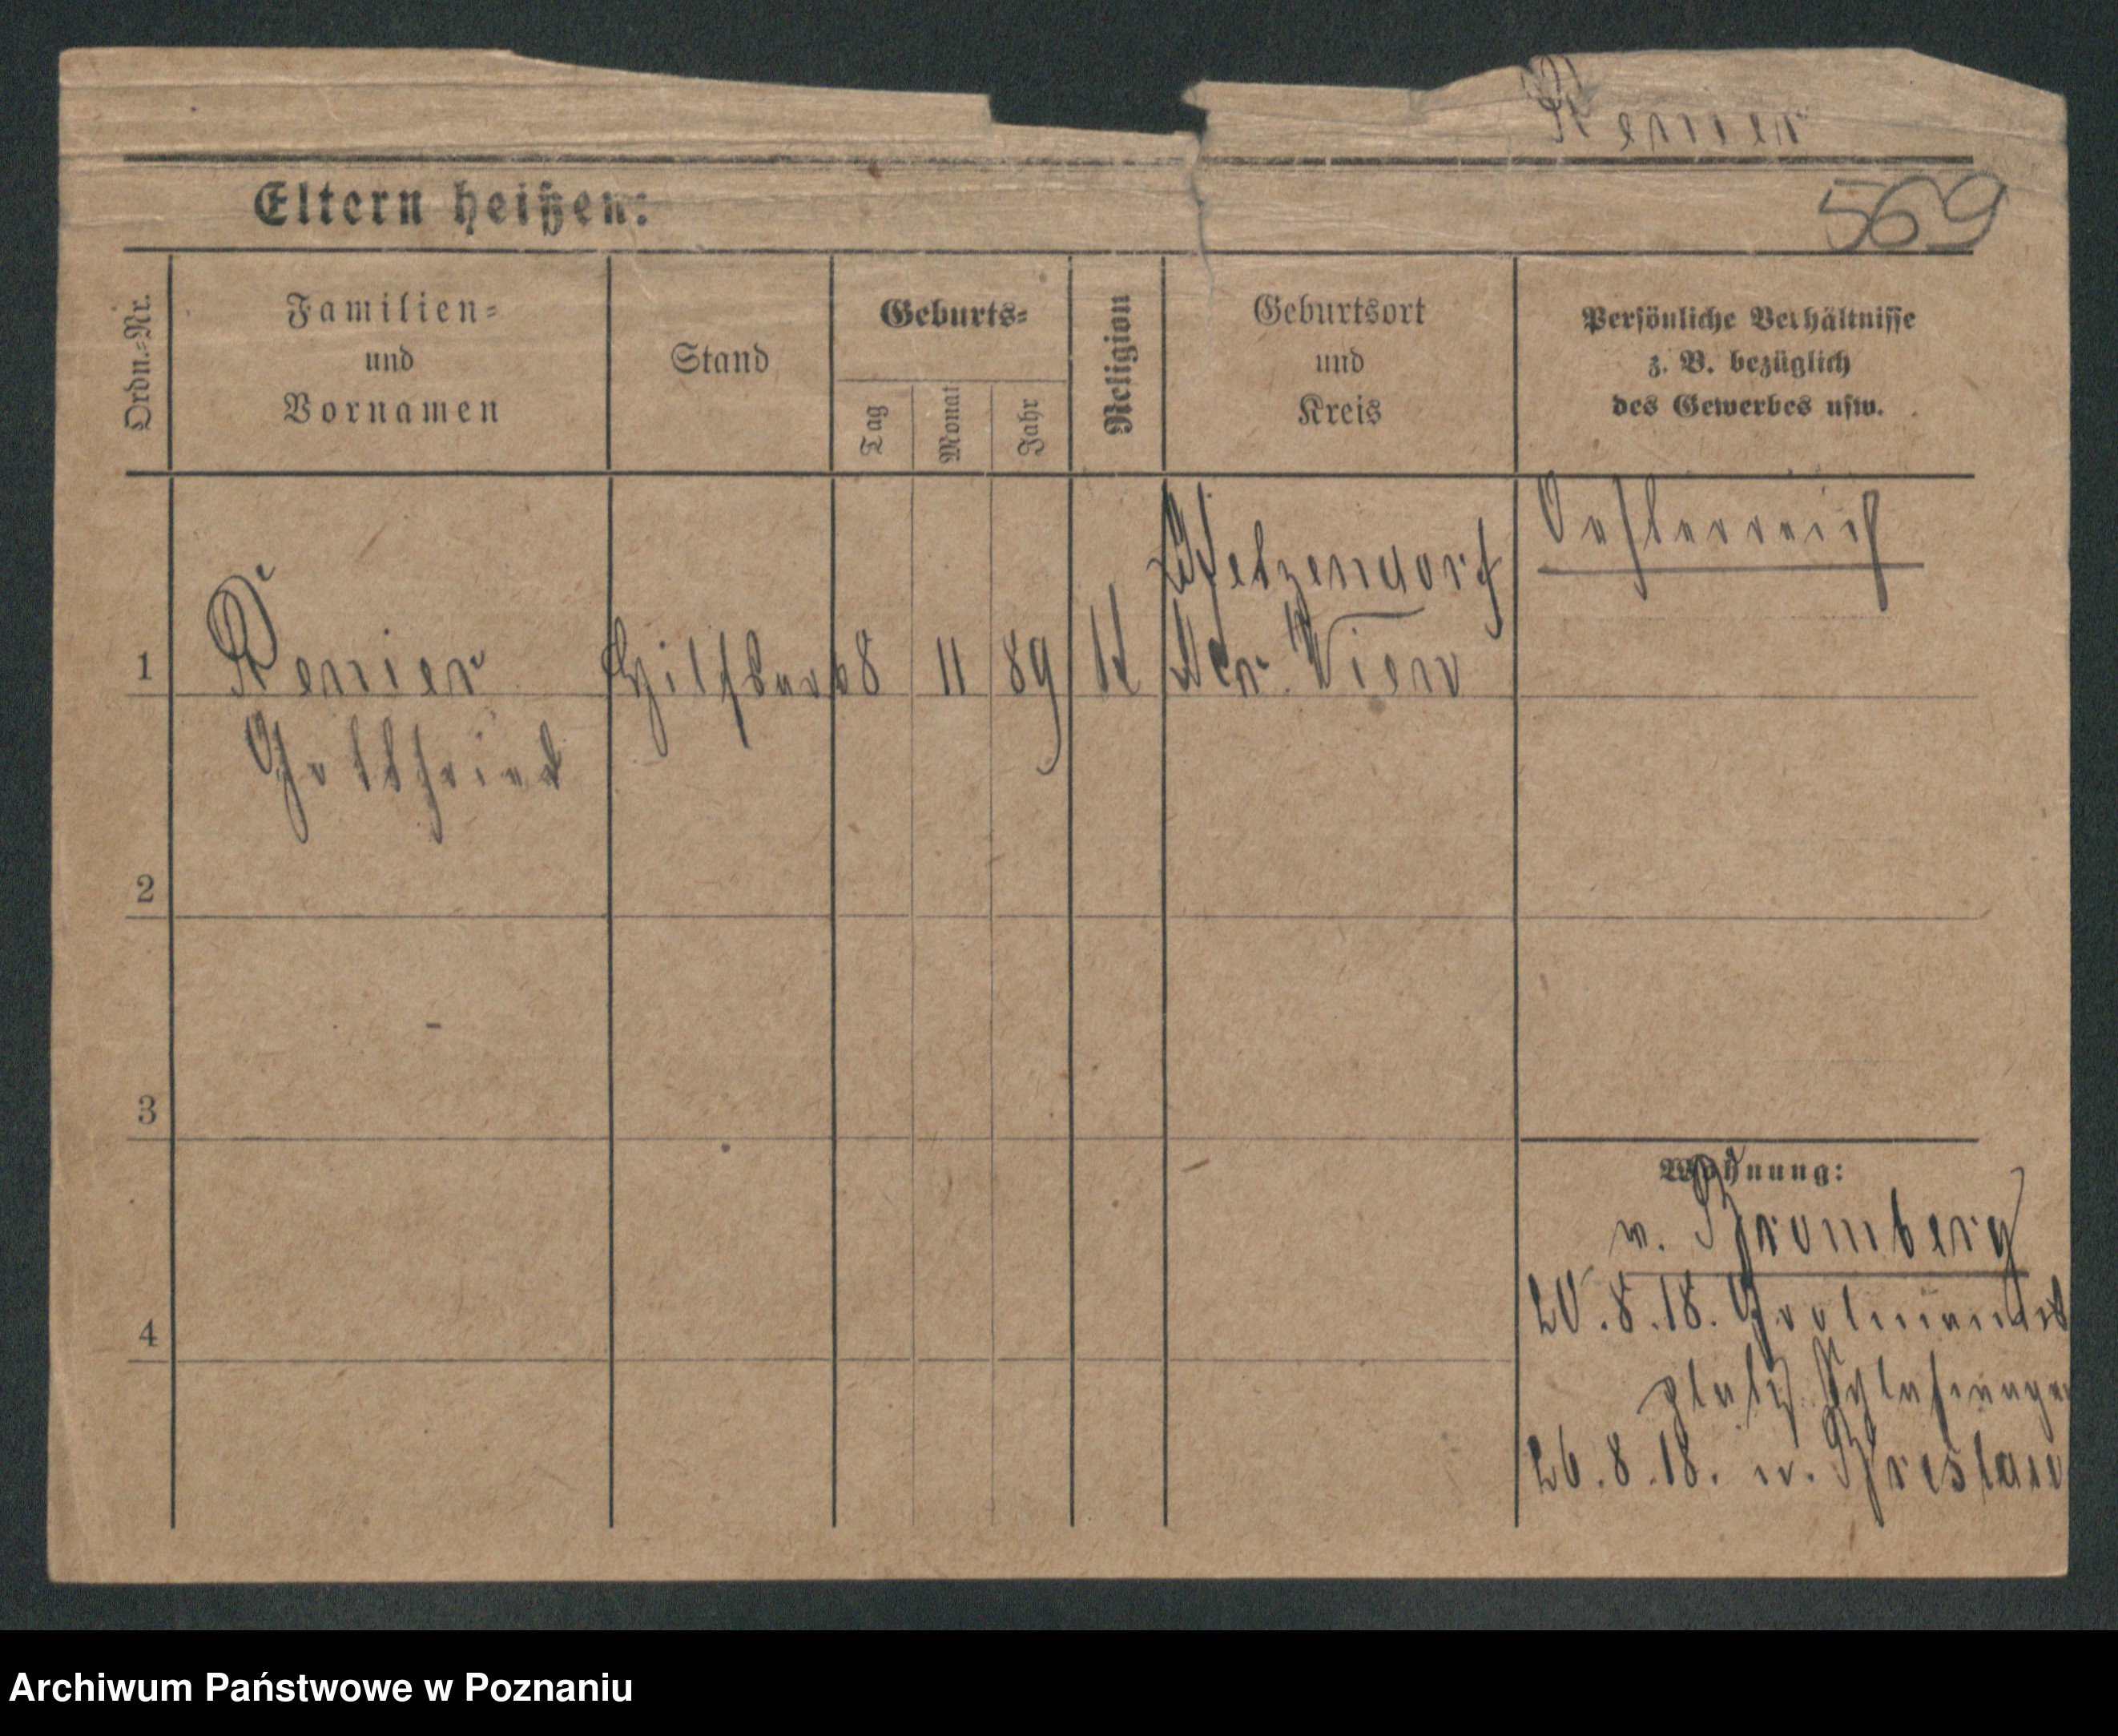 Renier
Eltern heißen:
569
Ordn.-Nr.
Familien-
und
Vornamen
Stand
Geburts-
Tag
Monat
Jahr
Religion
Geburtsort
und
Kreis
Persönliche Verhältnisse
z. B. bezüglich
des Gewerbes usw.
Oesterreich
1
Renier
8
11
89
Wien
Gottfried
2
3
Wohnung:
v. Bromberg
4
20.8.18.
26.8.18. n. Breslau
Archiwum Państwowe w Poznaniu